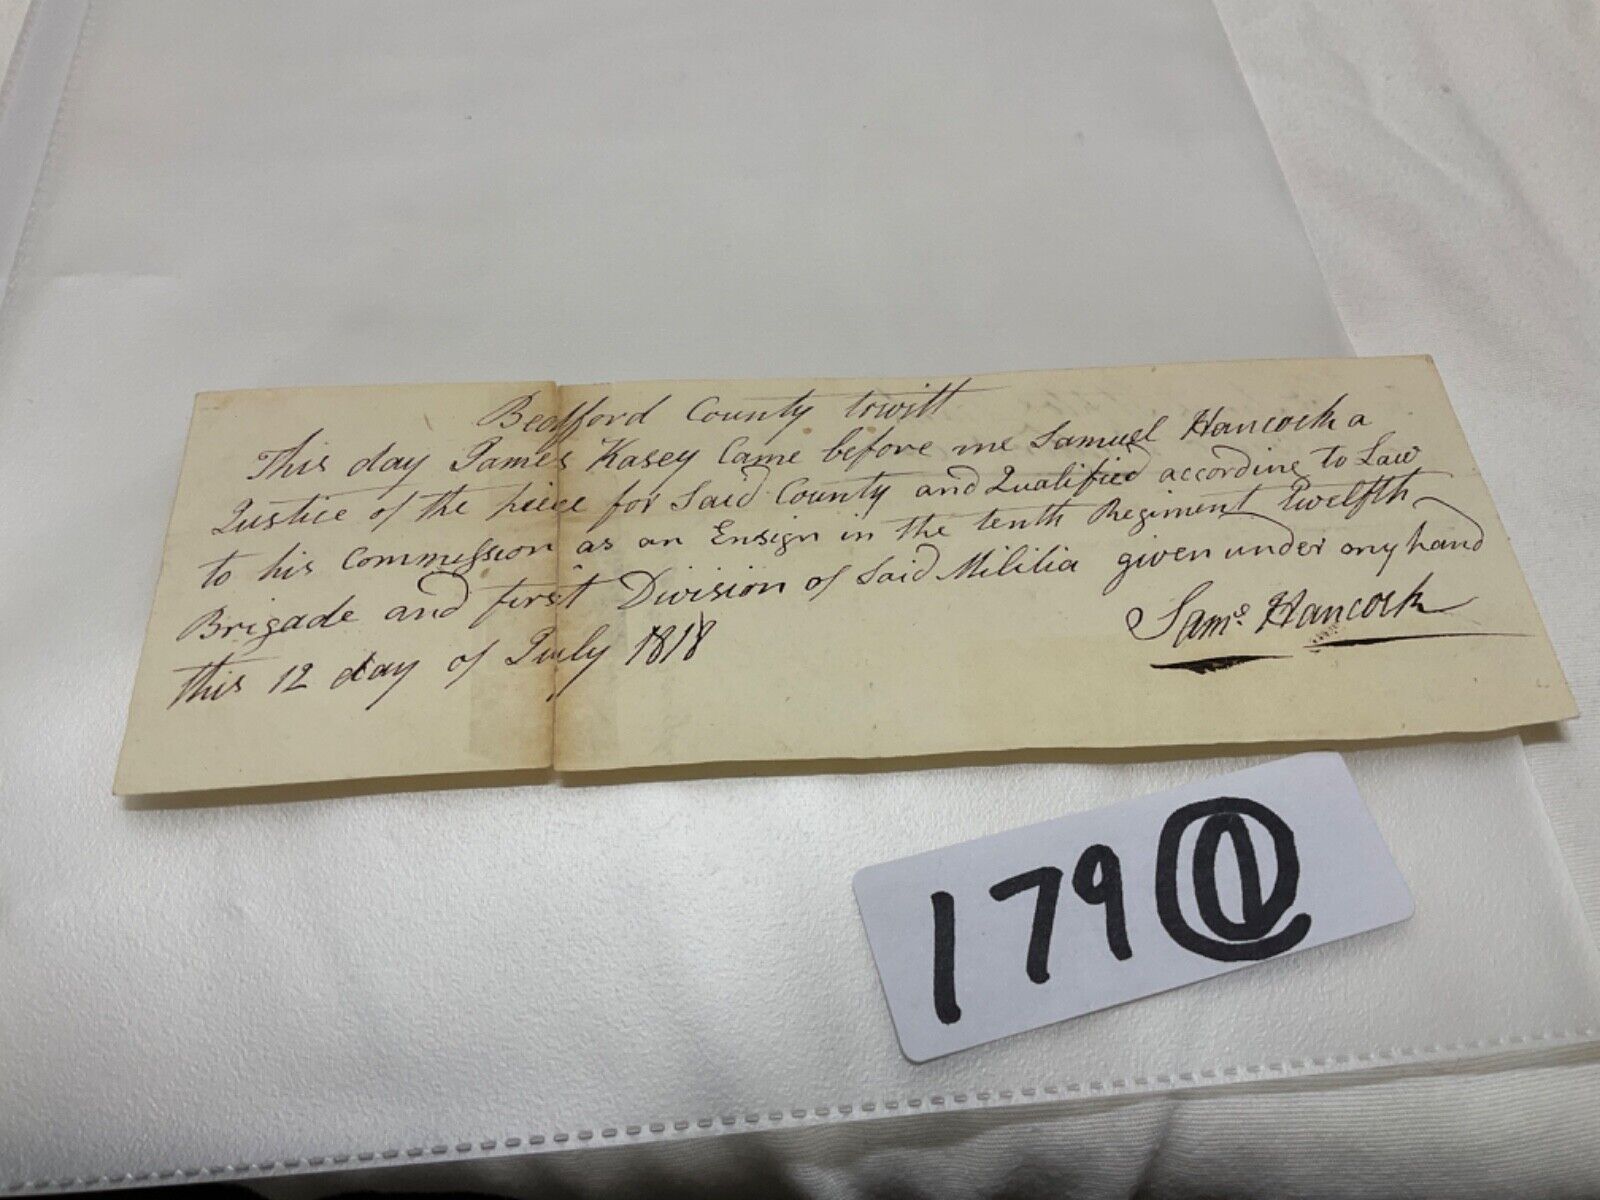 Bedford County towitt
This day James Kasey Came before me Samuel Hancock a
Justice of the peice for Said County and Qualified according to Law
to his Commission as an Ensign in the tenth Regiment Twelfth
Brigade and first Division of Said Militia given under my hand
this 12 day of July 1818
Saml. Hancock
179 1